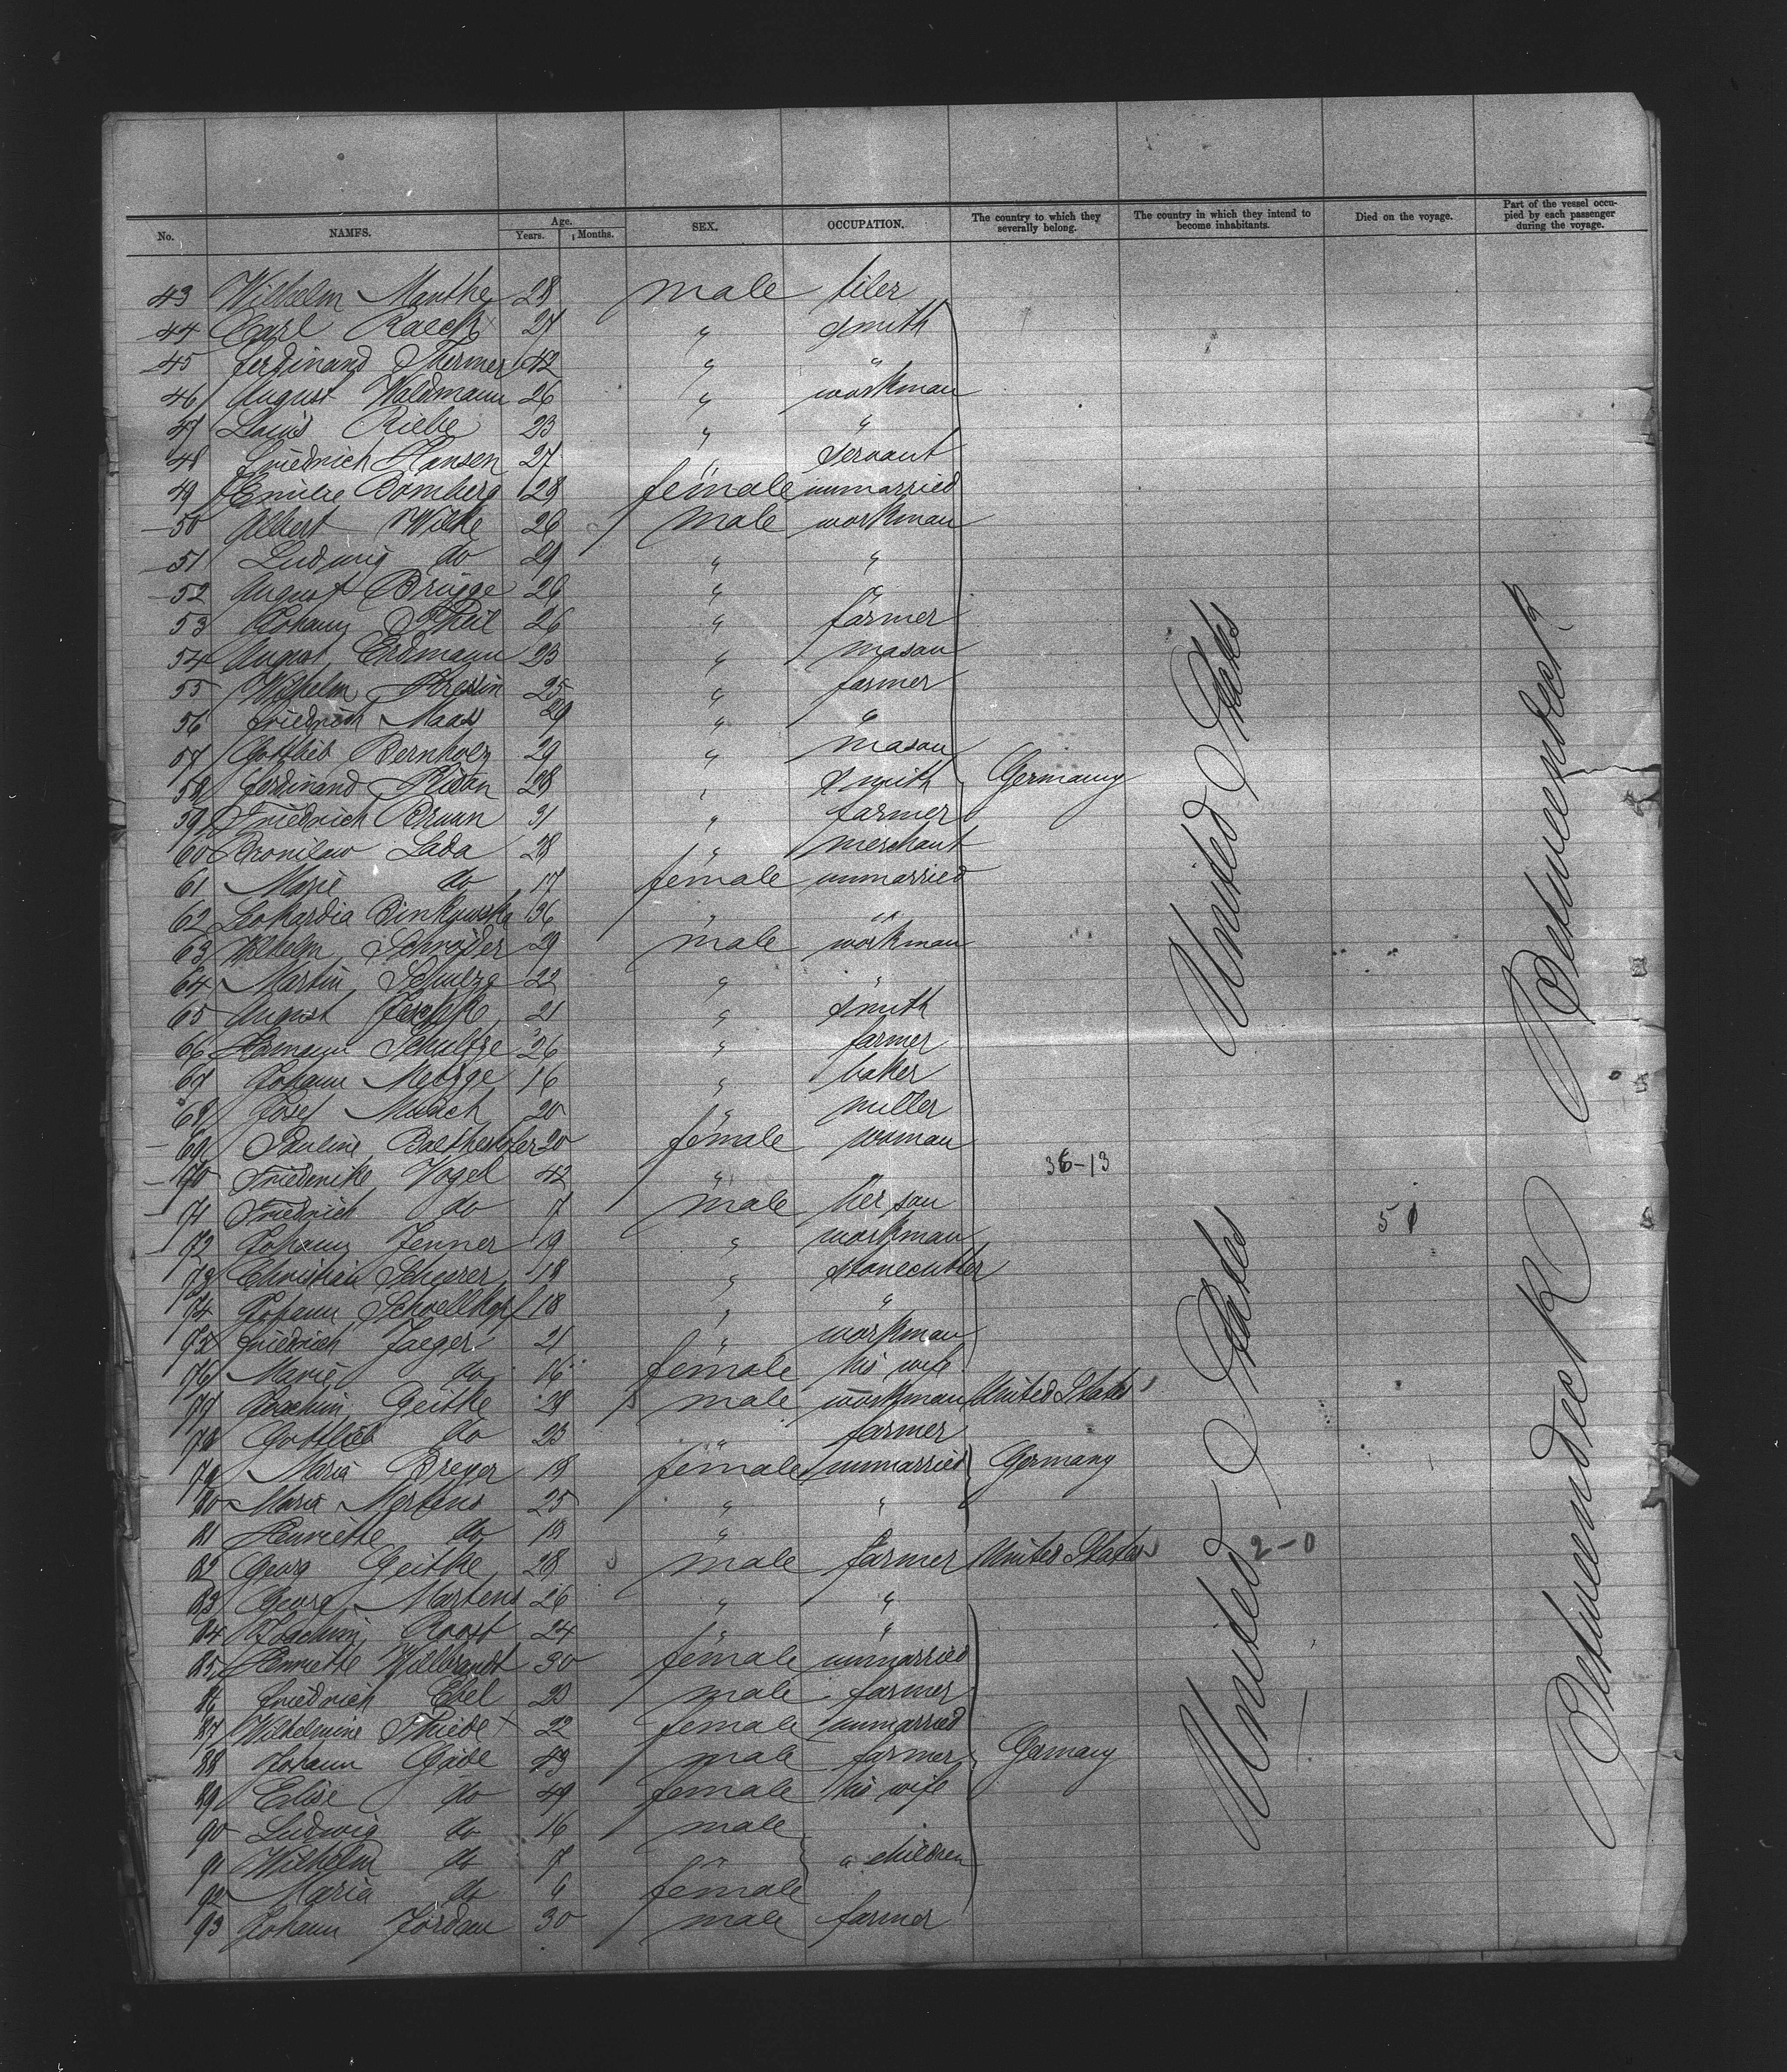 No. NAMES. Age. Years. Months. SEX. OCCUPATION. The country to which they severally belong. The country in which they intend to become inhabitants. Died on the voyage. Part of the vessel occupied by each passenger during the voyage.
43 Wilhelm Manthey 28 male tiler
44 Carl Raeck 27 " smith
45 Ferdinand Thermer 42 " "
46 August Waldmann 26 " workman
47 Louis Riebe 23 " "
48 Friedrich Hansen 27 " servant
49 Emilie Bomberg 28 female unmarried
50 Albert Wilke 26 male workman
51 Ludwig do 29 " "
52 August Brügge 26 " "
53 Johann Theil 26 " farmer
54 August Erdmann 23 " mason
55 Wilhelm 25 " farmer
56 Friedrich Maas 29 " "
57 Gottlieb Bernholz 29 " mason
58 Ferdinand 28 " smith Germany
59 Friedrich Bruun 31 " farmer
60 Bronilaw Lada 28 " merchant
61 Marie do 17 female unmarried
62 Leokardia 36 " "
63 Wilhelm Schröder 29 male workman
64 Martin Schulze 22 " "
65 August 21 " smith
66 Hermann Schultze 26 " farmer
67 Johann Metzge 16 " baker
68 Josef Munch 20 " miller
69 Pauline 20 female woman
70 Friederike Vogel 42 "
36-13
71 Friedrich do 7 male her son
51
72 Johann Jenner 19 " workman
73 Christian Scheerer 18 " stonecutter
74 Johann Schoellkopf 18 " "
75 Friedrich Jaeger 21 " workman
76 Marie do 16 female his wife
77 Joachim Geithe 28 male workman United States
78 Gottlieb do 23 " farmer
79 Maria Breyer 19 female unmarried Germany
80 Maria Mertens 25 " "
81 Henriette do 18 "
82 Georg Geithe 28 male farmer United States 2-0
83 Georg Martens 26 " "
84 Joachim Roost 24 " "
85 Henriette Willbrandt 30 female unmarried
86 Friedrich Ebel 23 male farmer
87 Wilhelmine Thiede 22 female unmarried
88 Johann Gäde 49 male farmer Germany
89 Elise do 49 female his wife
90 Ludwig do 16 male
91 Wilhelm do 7 " " children
92 Maria do 6 female
93 Johann Jordan 30 male farmer
United States
United States
Betweendeck
Betweendeck